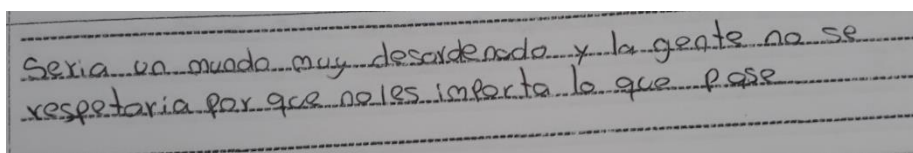 Seria un mundo muy desordenado y la gente no se
respetaria por que no les importa lo que pase